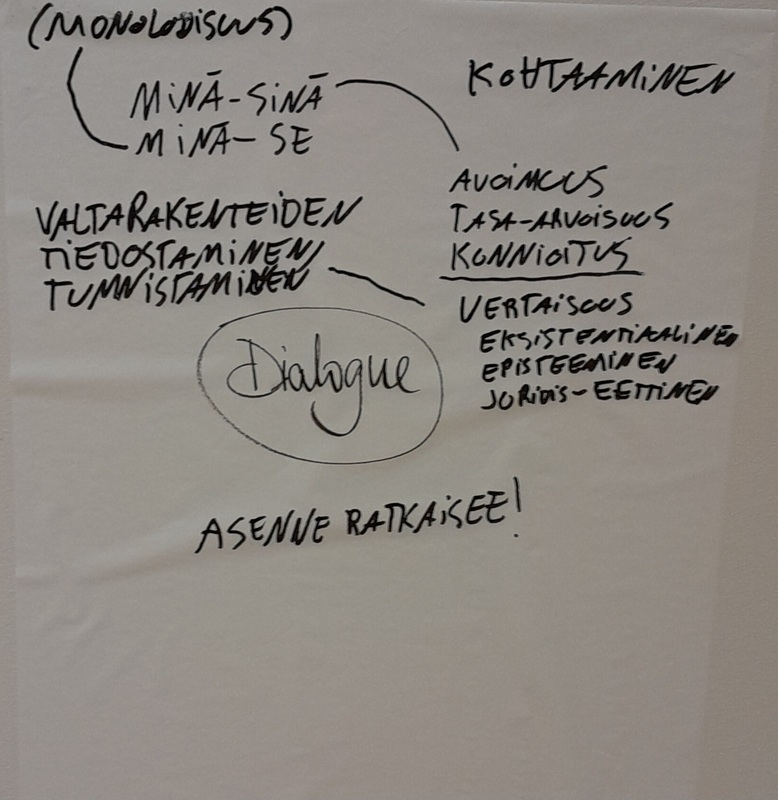 (MONOLOGISUUS)
MINÄ-SINÄ
MINÄ-SE
KOHTAAMINEN
AVOIMUUS
TASA-ARVOISUUS
KUNNIOITUS
VALTARAKENTEIDEN
TIEDOSTAMINEN/
TUNNISTAMINEN
VERTAISUUS
EKSISTENTIAALINEN
EPISTEEMINEN
JURIDIS-EETTINEN
Dialogue
ASENNE RATKAISEE!